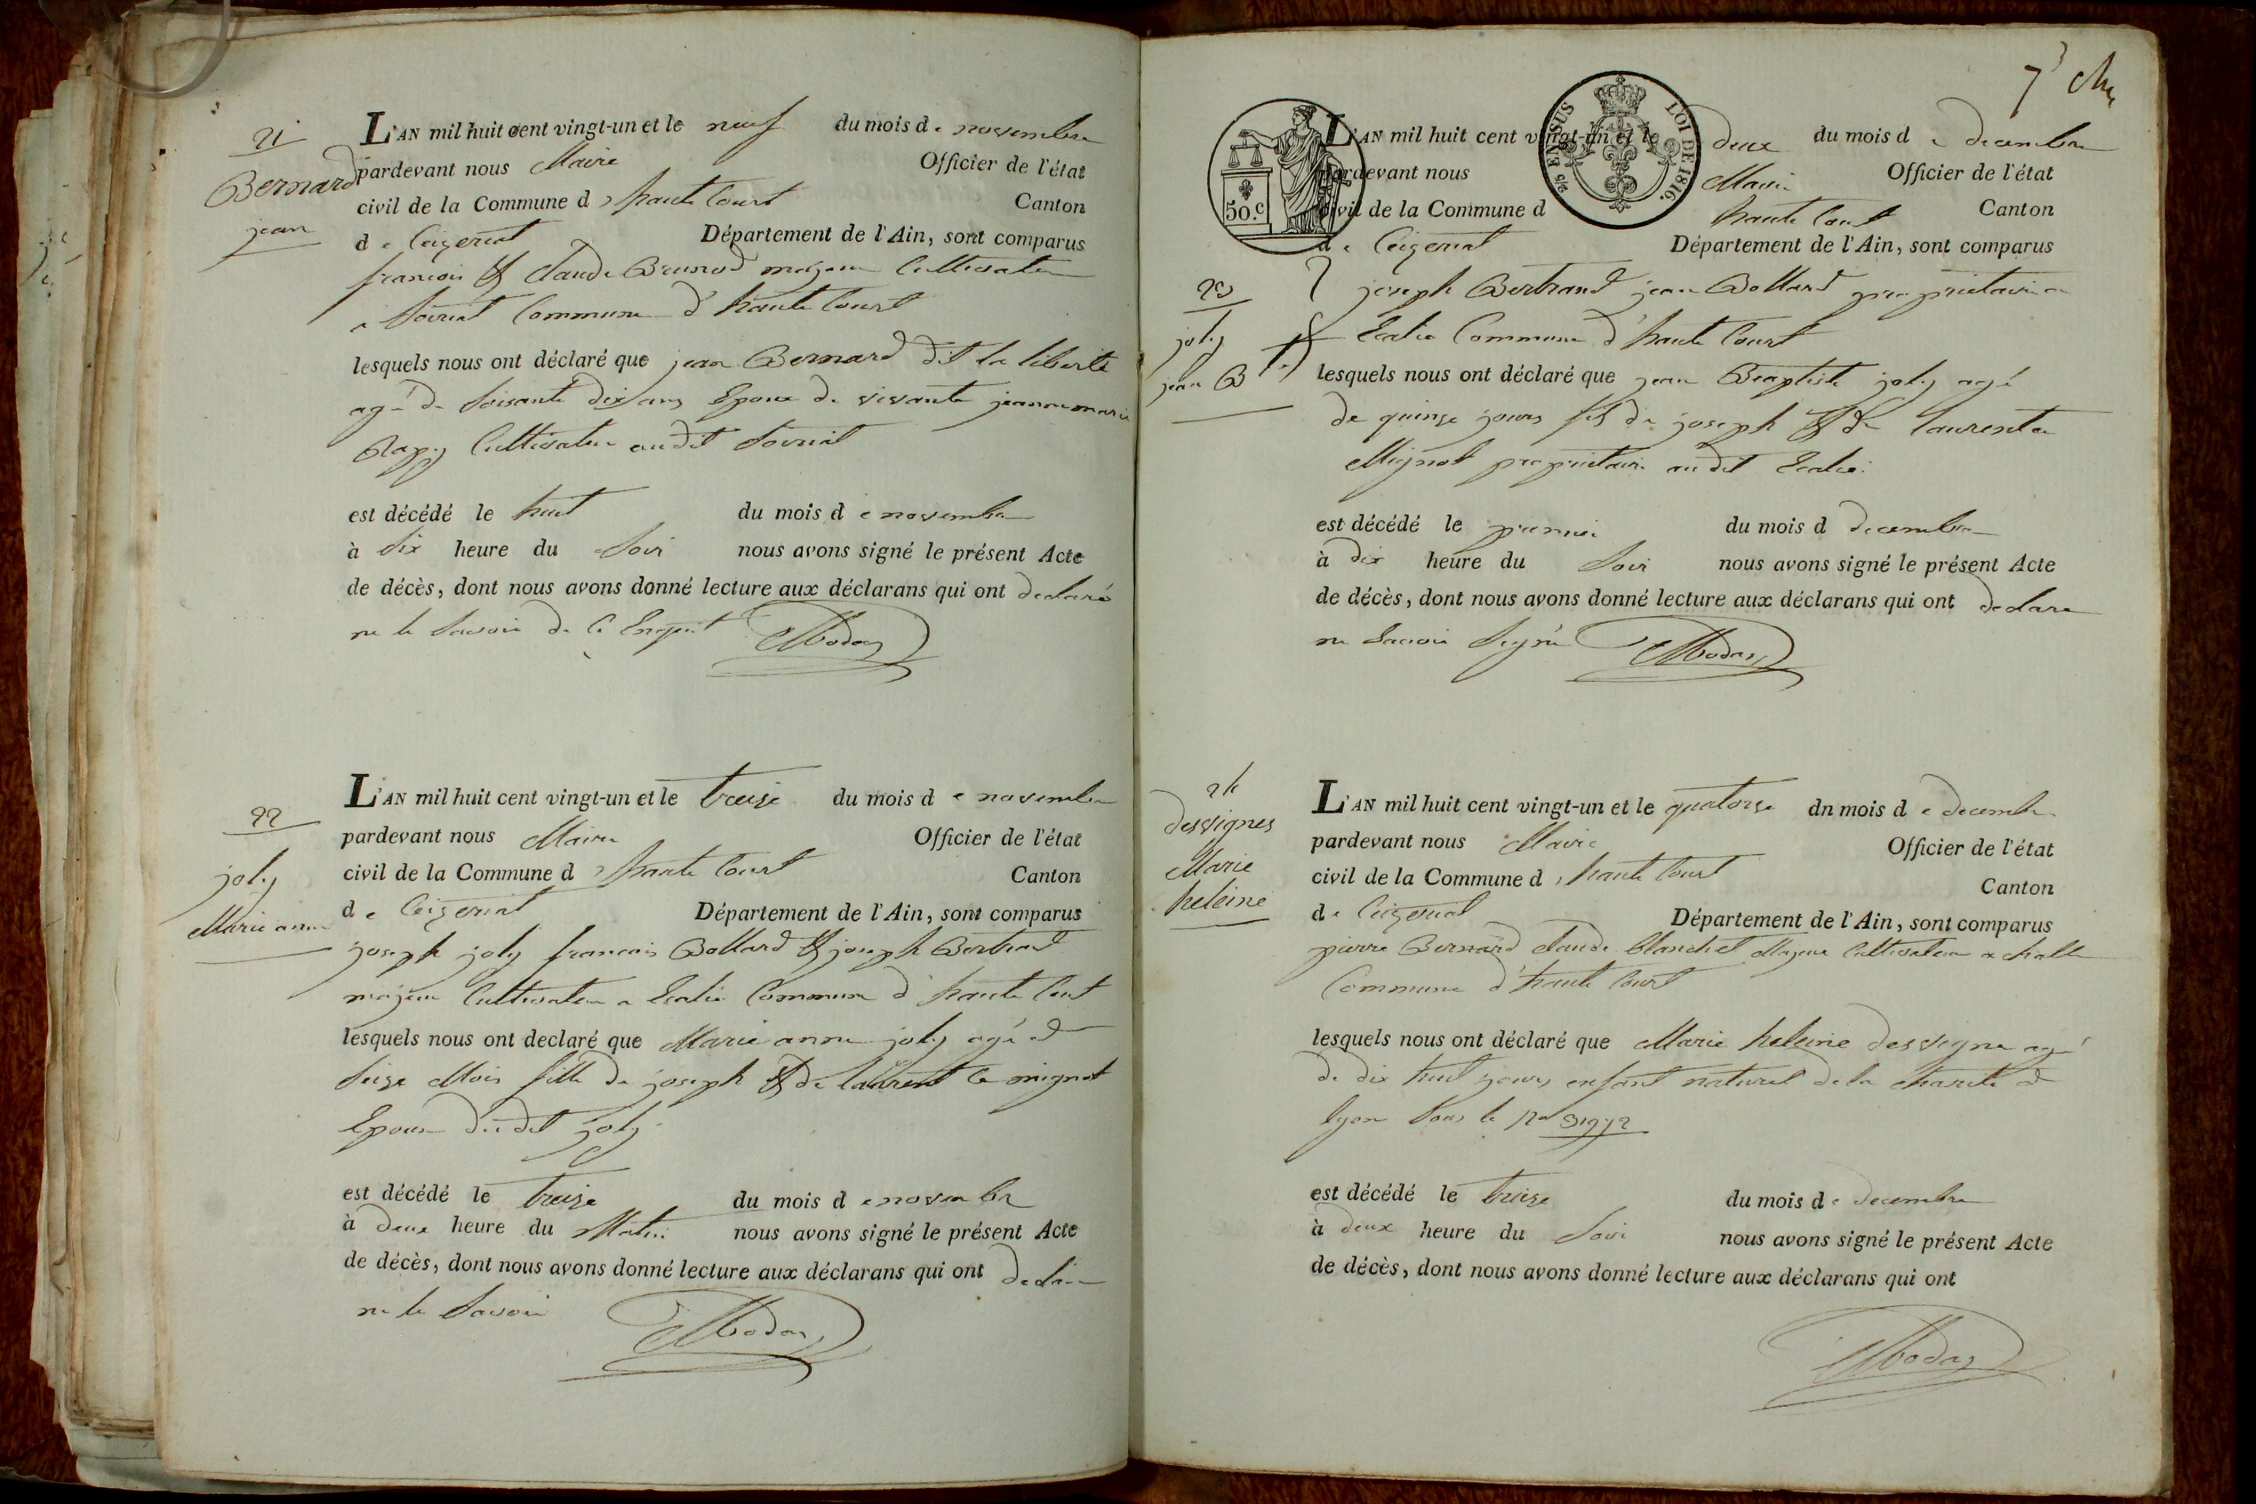 21
Bernard
jean
L'AN mil huit cent vingt-un et le neuf du mois de novembre
pardevant nous Maire Officier de l'état
civil de la Commune d haute Court Canton
de Ceizeriat Département de l'Ain, sont comparus
francois & claude Brunod majeur Cultivateur
a Commune d'haute Court
lesquels nous ont déclaré que jean Bernard dit la liberté
agé de Soisante dix ans Epoux de vivante jeanne marie
Cultivateur audit
est décédé le huit du mois de novembre
à Six heure du Soir nous avons signé le présent Acte
de décès, dont nous avons donné lecture aux déclarans qui ont declaré
ne le Savoir de Ce Enquit
22
joly
Marie anne
L'AN mil huit cent vingt-un et le treize du mois de novembre
pardevant nous Maire Officier de l'état
civil de la Commune d haute Court Canton
de Ceizeriat Département de l'Ain, sont comparus
joseph joly francois Bollard & joseph Bertrand
majeur Cultivateur a Commune d'haute Court
lesquels nous ont declaré que Marie anne joly agé d
Seize Mois fille de joseph & de laurent ce mignot
Epouse dudit joly
est décédé le treize du mois de novembre
à deux heure du Matin nous avons signé le présent Acte
de décès, dont nous avons donné lecture aux déclarans qui ont
ne le Savoir
7
50.c
C/S ENSUS LOI DE 1816.
23
joly
jean Bte
L'AN mil huit cent vingt-un et le deux du mois de decembre
pardevant nous Maire Officier de l'état
civil de la Commune d haute Court Canton
de Ceizeriat Département de l'Ain, sont comparus
joseph Bertrand jean Bollard proprietaire a
Commune d'haute Court
lesquels nous ont déclaré que jean Baptiste joly agé
de quinze jours fils de joseph & de laurent ce
Mignot proprietaire audit
est décédé le premier du mois d decembre
à dix heure du Soir nous avons signé le présent Acte
de décès, dont nous avons donné lecture aux déclarans qui ont declare
ne Savoir Signé
24
dessignes
Marie
heleine
L'AN mil huit cent vingt-un et le quatorze dn mois de decembre
pardevant nous Maire Officier de l'état
civil de la Commune d haute Court Canton
de Ceizeriat Département de l'Ain, sont comparus
pierre Bernard claude blanchet Majeur Cultivateur a challe
Commune d'haute Court
lesquels nous ont déclaré que Marie heleine dessigne agé
de dix huit jours enfant naturel de la charité de
lyon Sous le No
est décédé le treize du mois de decembre
à deux heure du Soir nous avons signé le présent Acte
de décès, dont nous avons donné lecture aux déclarans qui ont